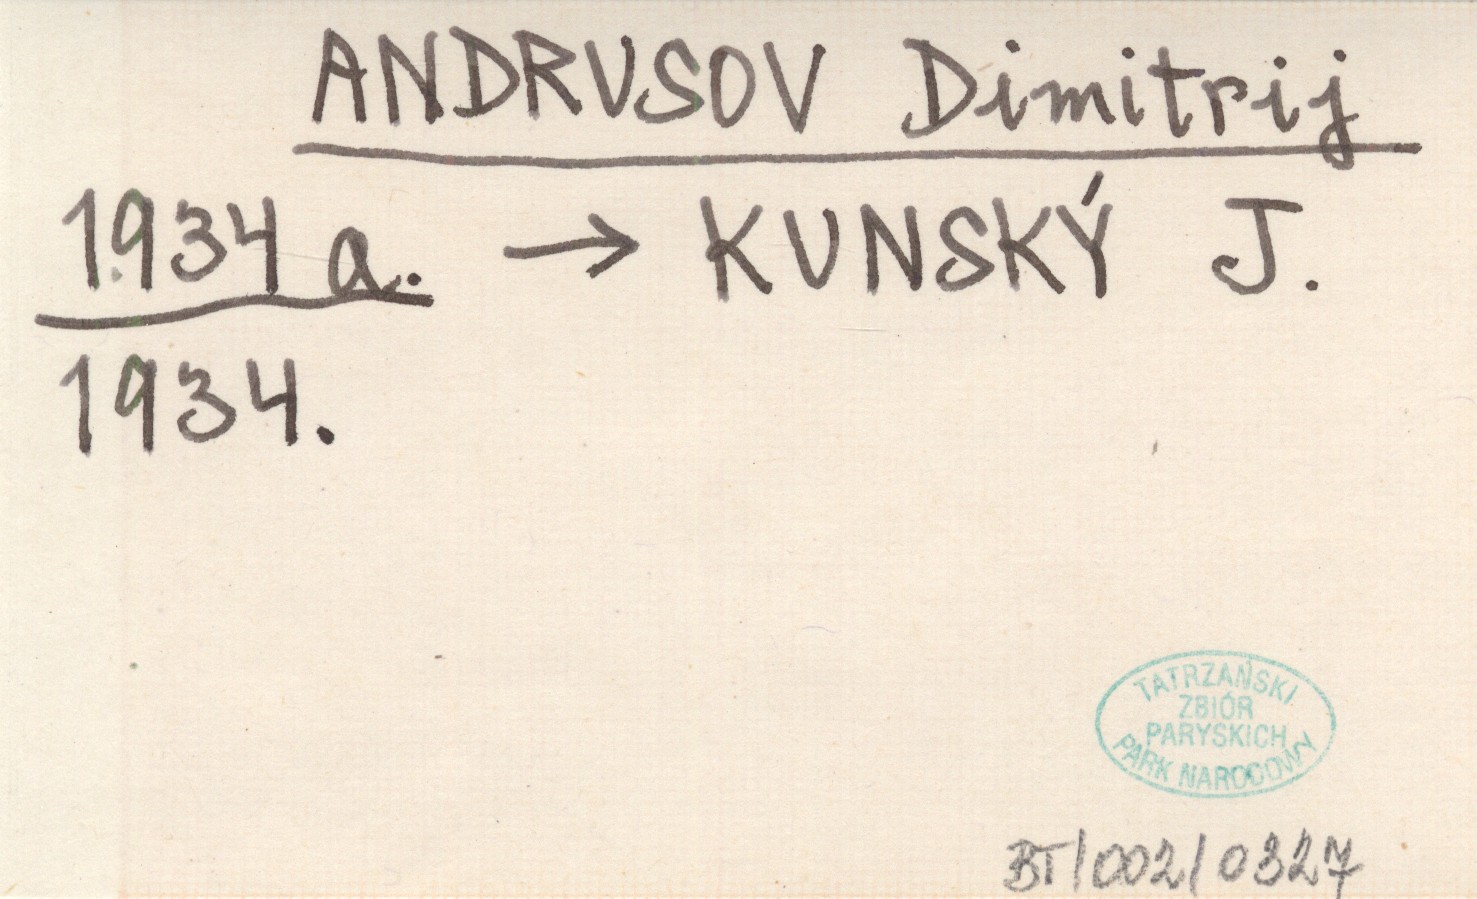 ANDRUSOV Dimitrij
1934 a. → KUNSKÝ J.
1934.
TATRZAŃSKI
ZBIÓR
PARYSKICH
PARK NARODOWY
BT/002/0327